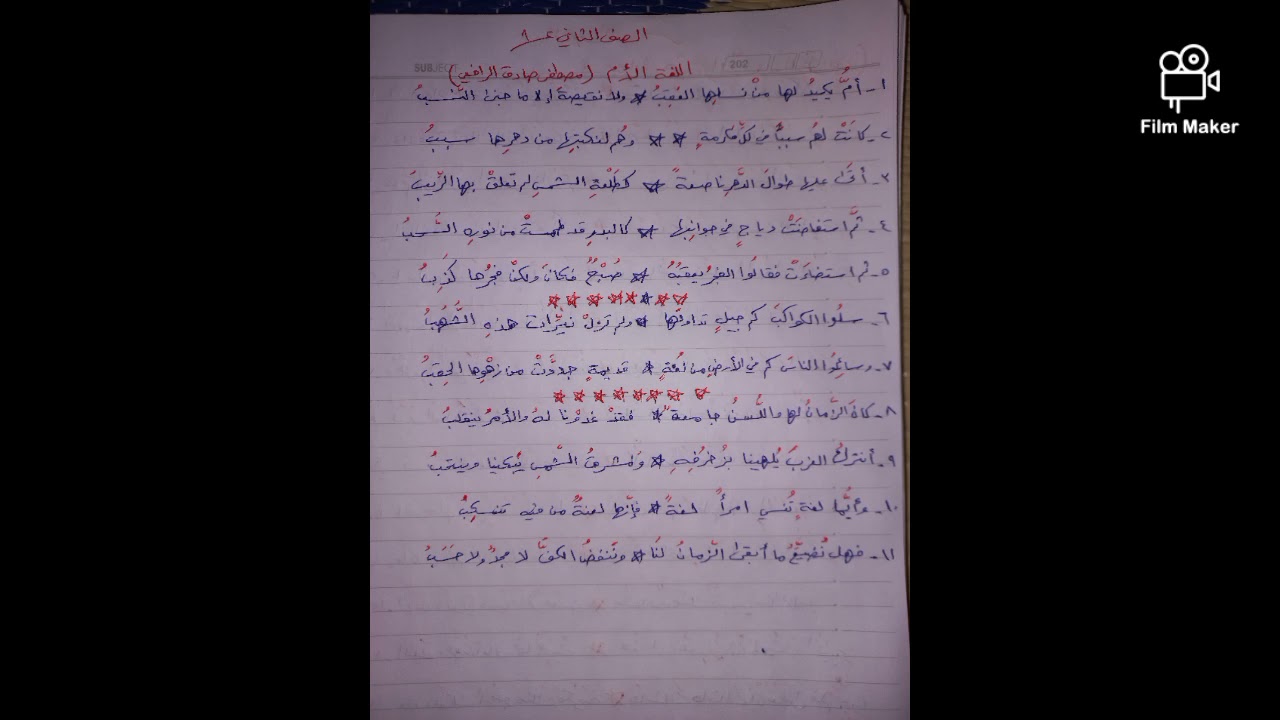 الصف الثاني ع ١
SUBJECT 202
اللغة الأم (مصطفى صادق الرافعي)
١- أمٌّ يكيدُ لها من نسلِها العَقِبُ * ولا نقيصةَ إلا ما جنى النَّسَبُ
٢- كانَتْ لهُم سبباً في كلِّ مَكرمةٍ * * وهُم لنكبتِها من دهرِها سببُ
٣- أتى عليها طوالَ الدَّهرِ ناصعةً * كطَلْعةِ الشمسِ لم تعلقْ بها الرِّيَبُ
٤- ثمَّ استفاضَتْ دياجٍ في جوانبِها * كالبدرِ قد طمسَتْ من نورِهِ السُّحبُ
٥- ثم استضاءَتْ فقالُوا الفجرُ يعقبُهُ * صُبْحٌ فكانَ ولكنْ فجرُها كَذِبُ
٦- سلُوا الكواكبَ كم جيلٍ تداولَها * ولم تزلْ نيِّراتٍ هذهِ الشُّهُبُ
٧- وسائِلُوا الناسَ كم في الأرضِ من لُغةٍ * قديمةٍ جدَّدَتْ من زهْوِها الحِقَبُ
٨- كانَ الزَّمانُ لها واللُّسْنُ جامعةٌ * فقدْ غدوْنا لهُ والأمرُ ينقلبُ
٩- أنتركُ الغربَ يُلهينا بزُخرُفِهِ * ومَشرقُ الشَّمسِ يَبكينا وينتحبُ
١٠- وأيُّما لغةٍ تُنسي امرأً لغةً * فإنَّها لعنةٌ من فيهِ تنسكِبُ
١١- فهل نُضيِّعُ ما أبقى الزَّمانُ لنَا * ونَنفضُ الكفَّ لا مجدٌ ولا حَسَبُ
Film Maker